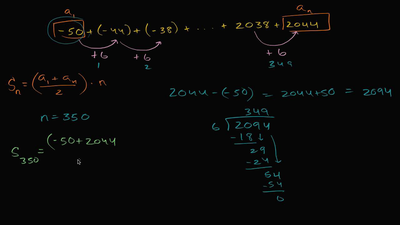 a₁ aₙ
-50 + (-44) + (-38) + · · · · + 2038 + 2044
+6 +6 +6
1 2 349
Sₙ = ((a₁ + aₙ)/2) · n
2044 - (-50) = 2044 + 50 = 2094
n = 350
349
6 2094
-18
29
-24
54
-54
0
S₃₅₀ = (-50 + 2044